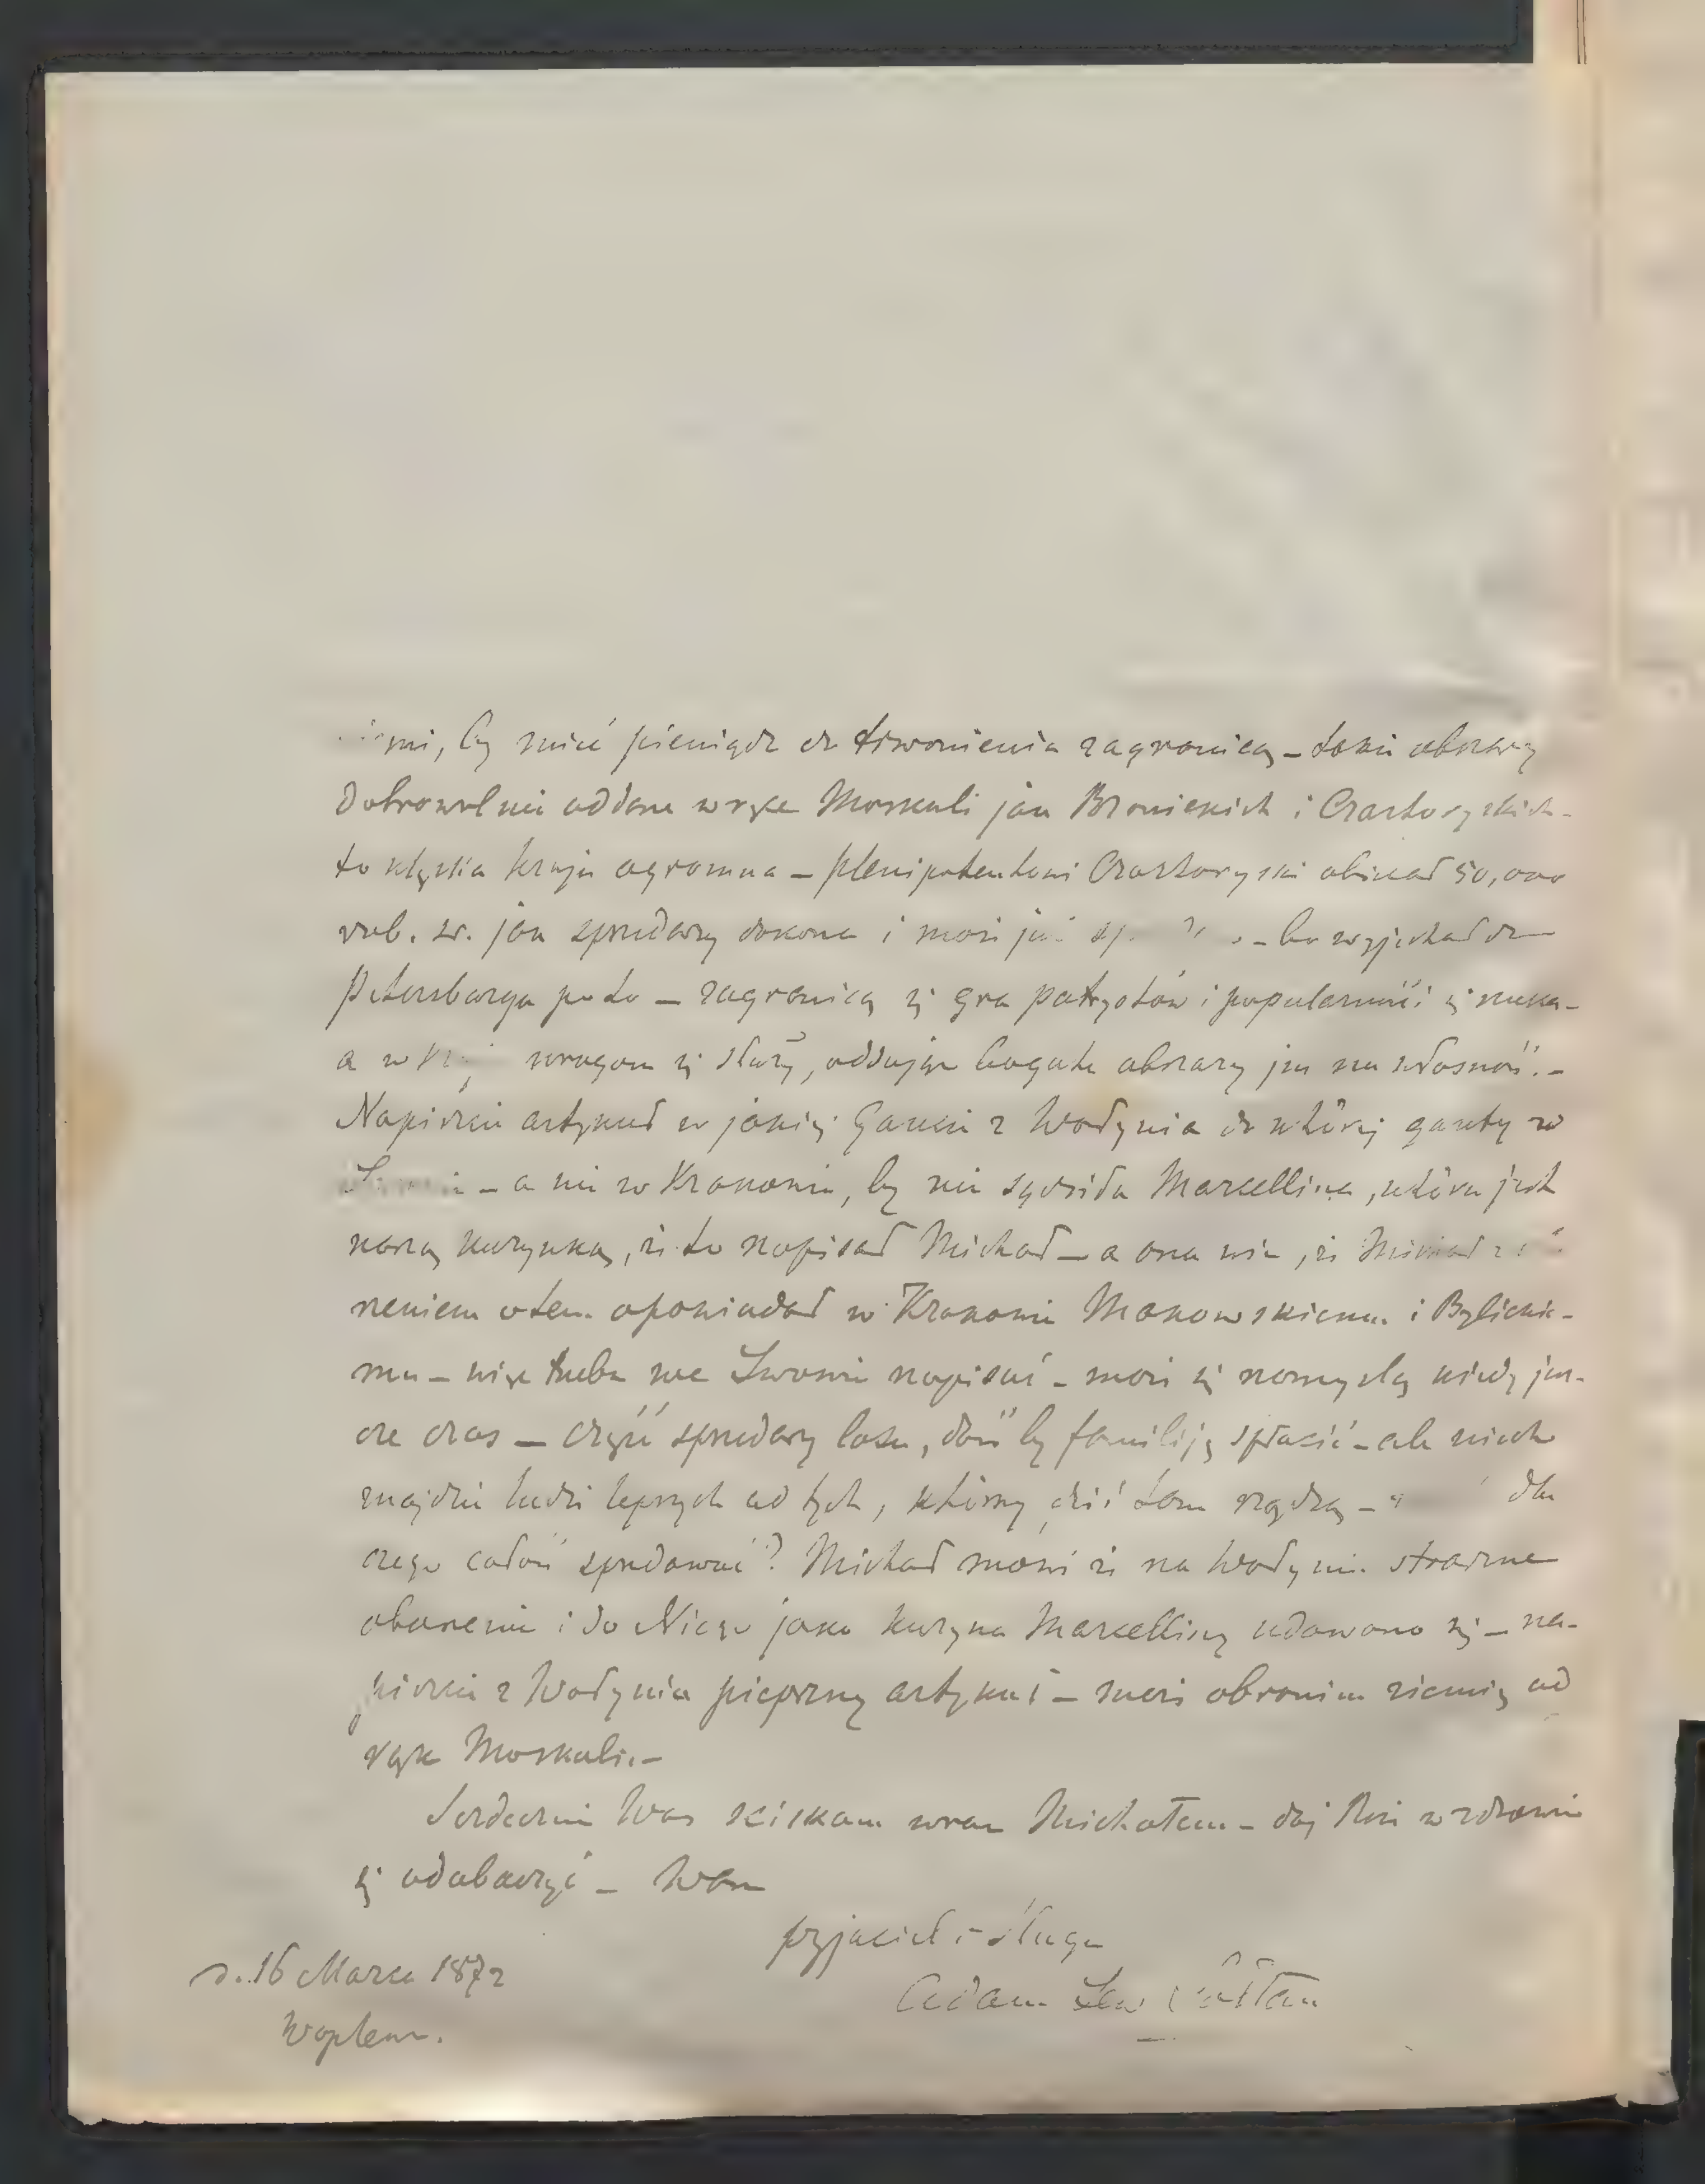 mi, by mieć pieniądz do trwonienia zagranicą – takie obszary
dobrowolnie oddane w ręce Moskali jak Branickich i Czartoryskich –
to klęska kraju ogromna – plenipotentowi Czartoryski obiecał 50,000
rub. sr. jak sprzedaży dokona i może już – bo wyjechał do
Petersburga po to – zagranicą się gra patryotów i popularności się szuka –
a w wrogom się służy, oddając bogate obszary im na własność. –
Napiszcie artykuł w jakiej Gazecie z Wołynia do której gazety w
– a nie w Krakowie, by nie sądziła Marcellina, która jest
naszą kuzynką, że to napisał Michał – a ona wie, że Michał z
neniem o tem opowiadał w Krakowie Mańkowskiemu i Bylickie-
mu – więc trzeba we Lwowie napisać – może się namyślą kiedy jesz-
cze czas – część sprzedaży lasu, dość by familiję spłacić – ale niech
znajdzie ludzi lepszych od tych, którzy dziś tam rządzą – dla
czego całość sprzedawać? Michał mówi że na Wołyniu straszne
oburzenie i do Niego jako kuzyna Marcelliny udawano się – na-
piszcie z Wołynia pieprzny artykuł – może obronim ziemię od
rąk Moskali. –
Serdecznie Was ściskam wraz Michałem – daj Boże w zdrowiu
się odobaczyć – Wam
przyjaciel i sługa
Adam Lew Sołtan
d. 16 Marca 1872
Waplewo.